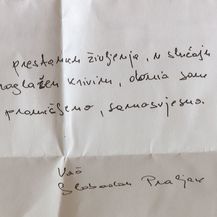 prestankom življenja, u slučaju
proglašen krivim, donio sam
promišljeno, samosvjesno.
Vaš
Slobodan Praljak